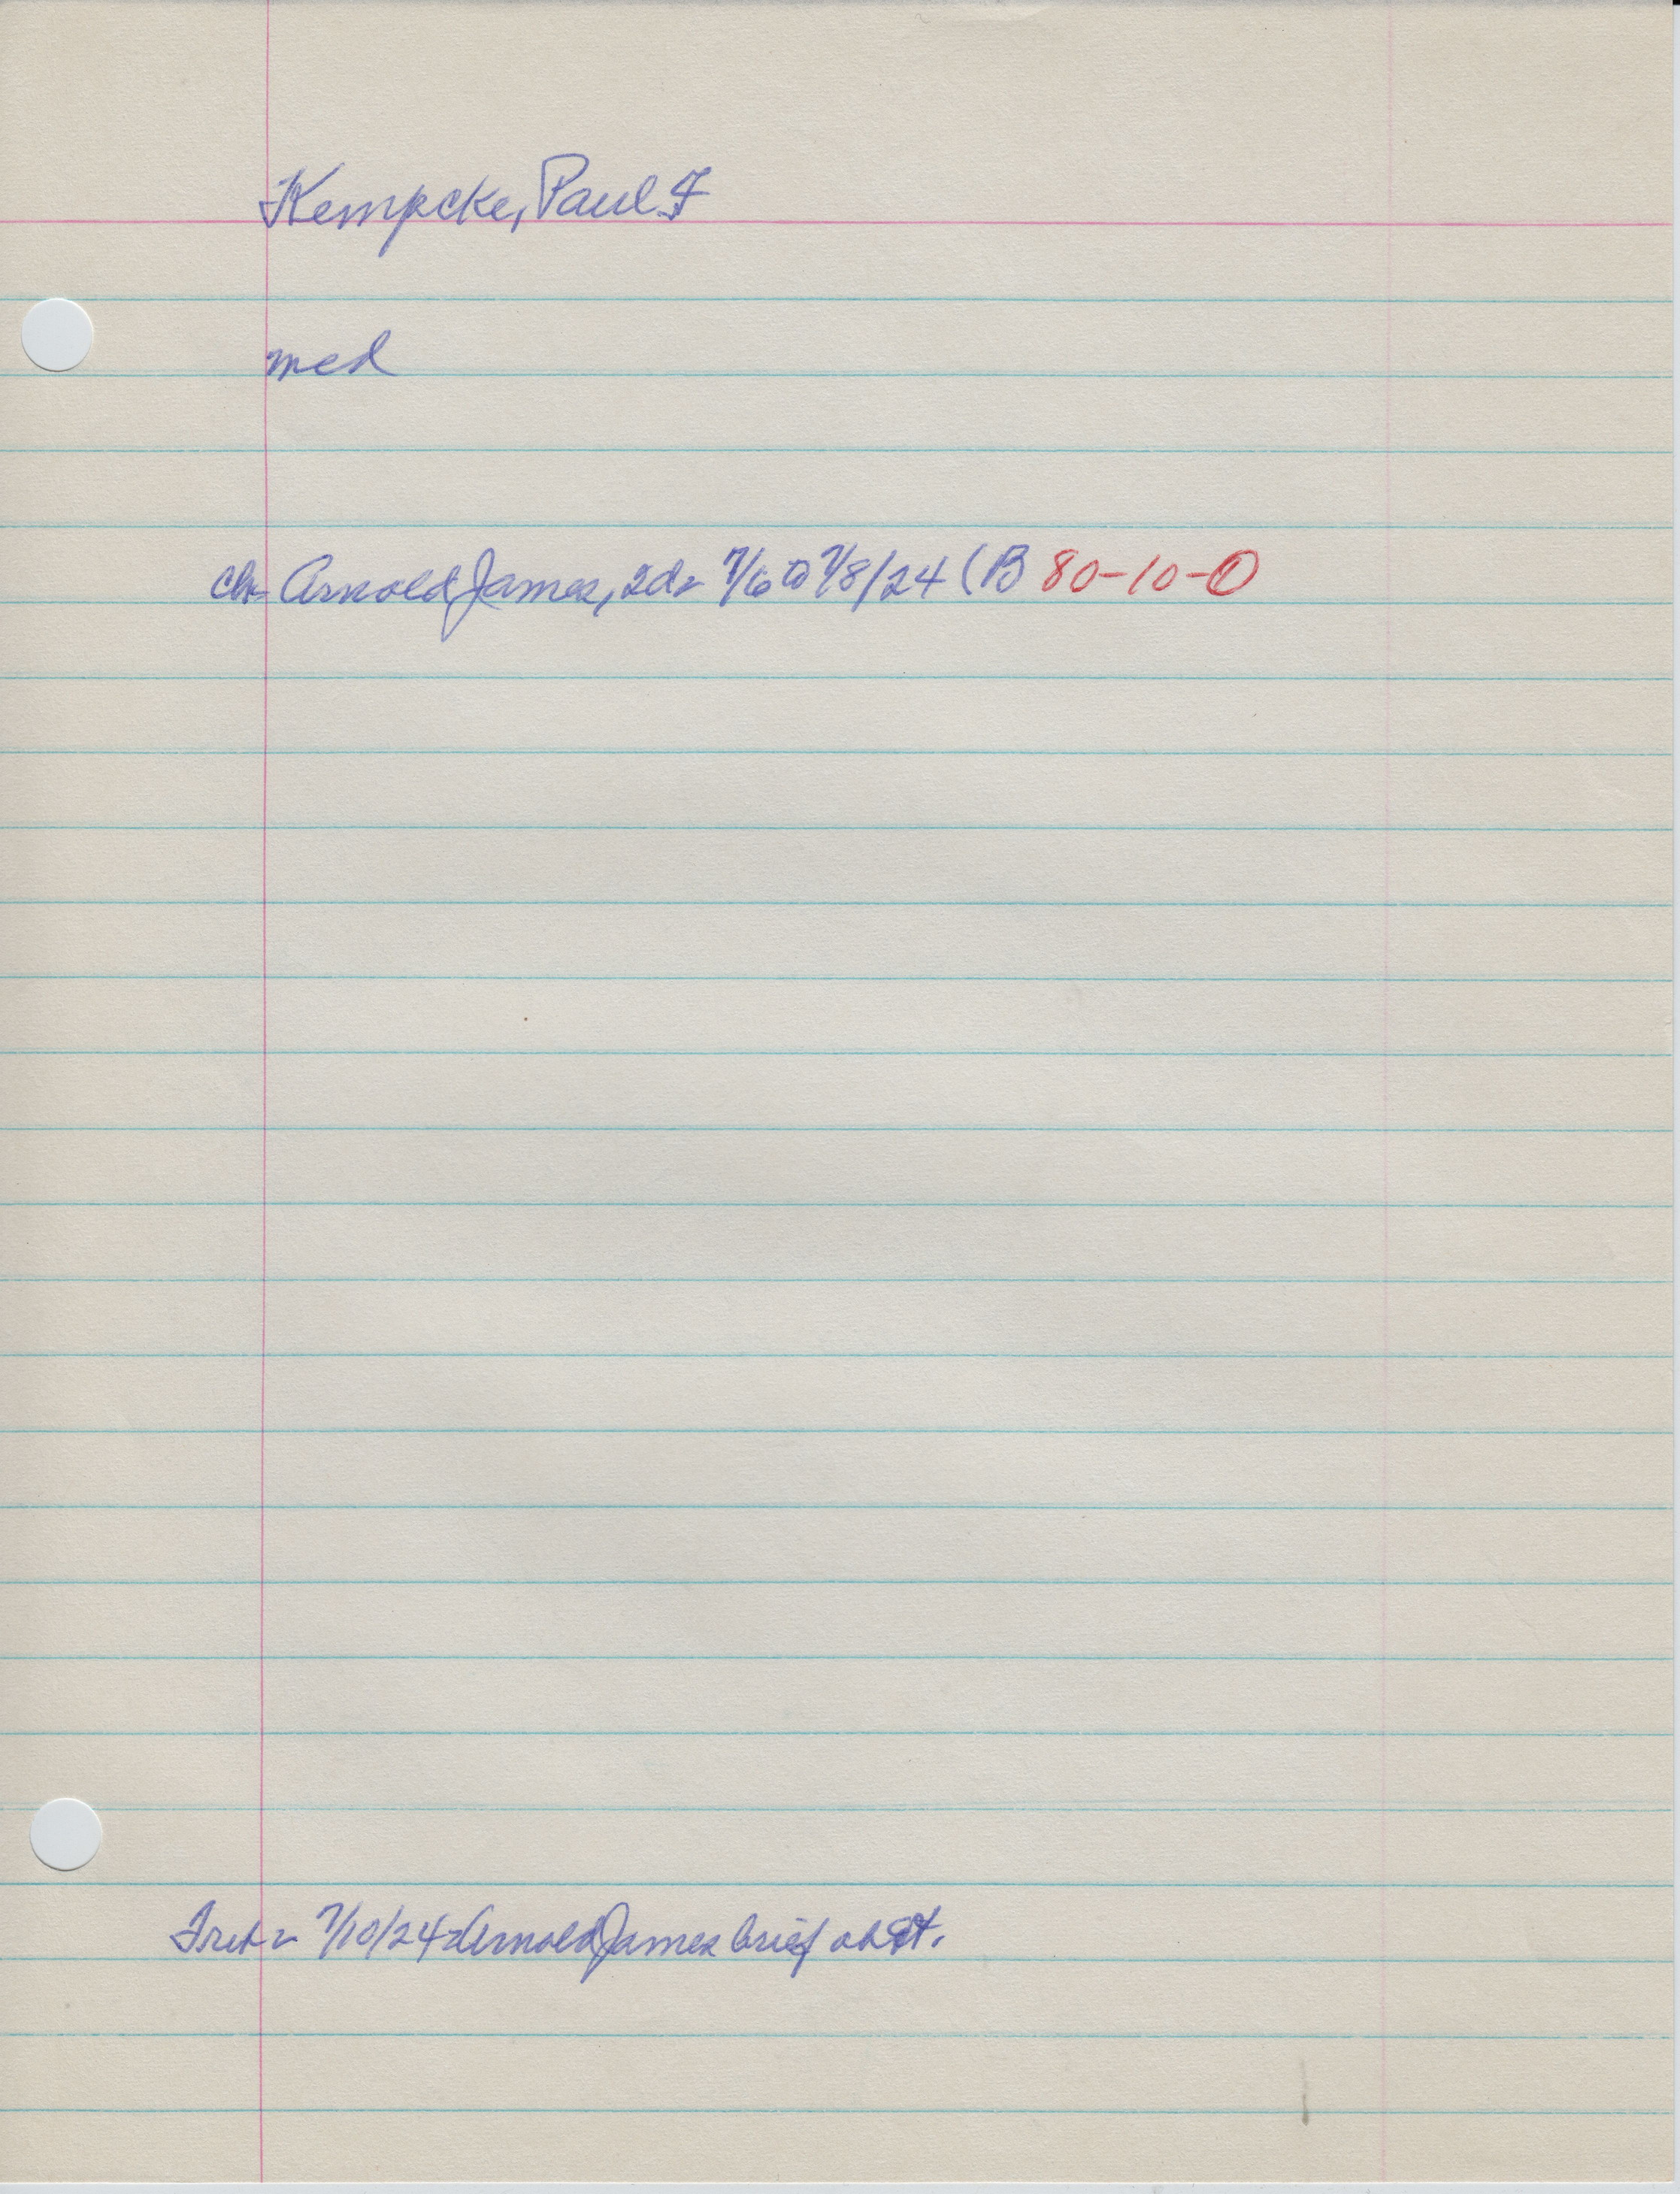 Kempcke, Paul F
med
ch- Arnold James, 2d- 7/6 to 7/8/24 (B 80-10-0
Fret- 7/10/24-Arnold James brief obit.